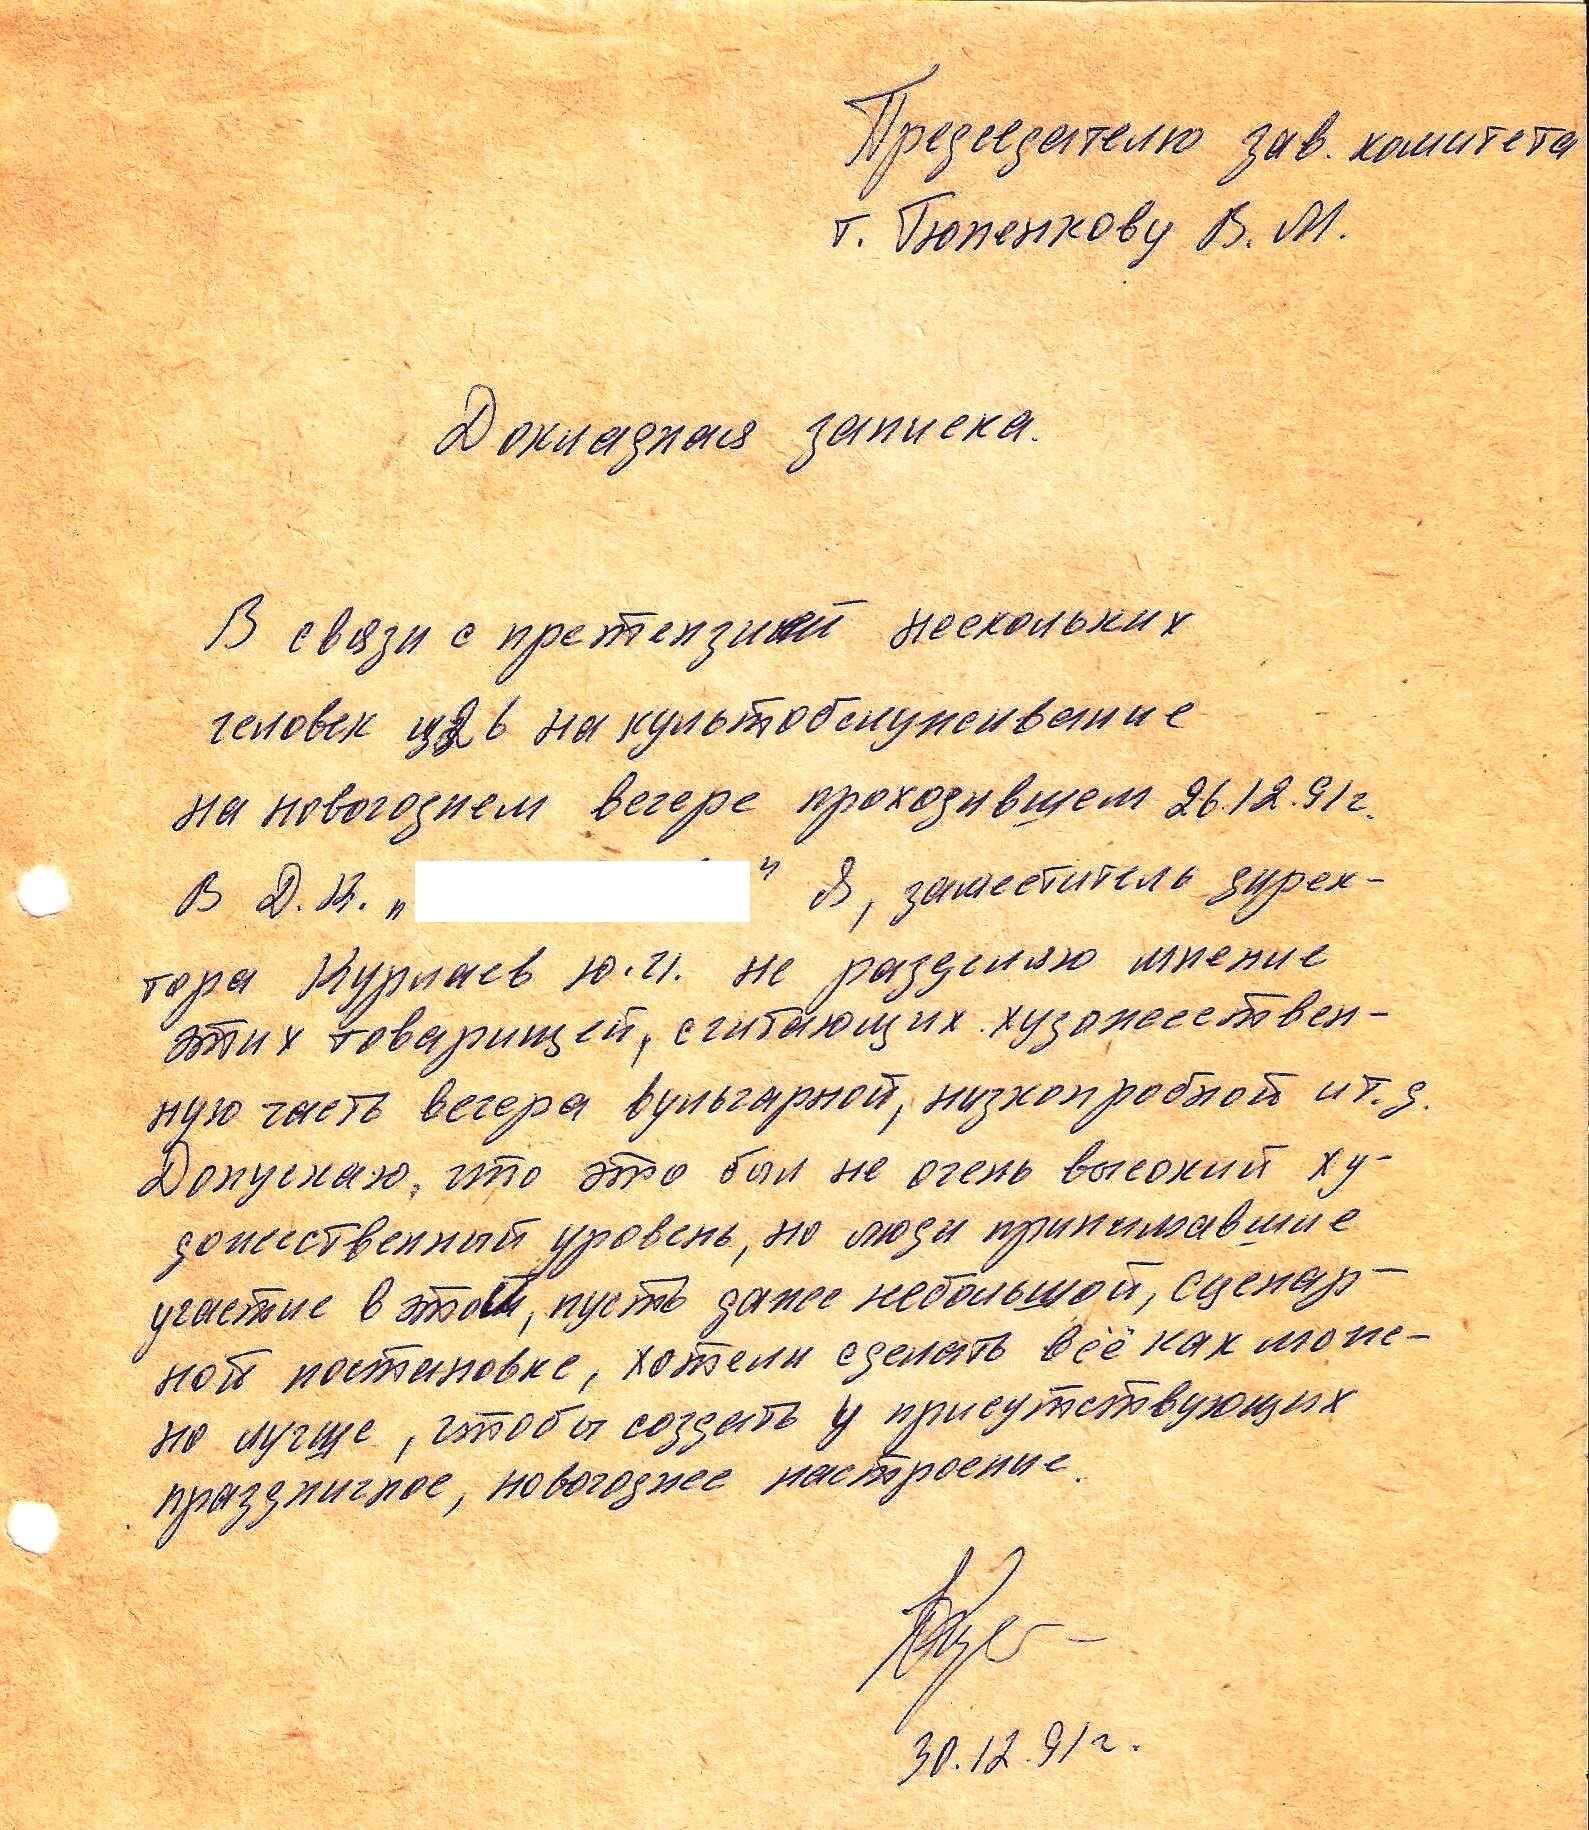 Председателю зав. комитета
т. Тюпенкову В. М.
Докладная записка.
В связи с претензией нескольких
человек ц26 на культобслуживание
на новогоднем вечере проходившем 26.12.91г.
В Д.К. „ " Я, заместитель дирек-
тора Курлаев Ю.И. не разделяю мнение
этих товарищей, считающих художествен-
ную часть вечера вульгарной, низкопробной и т.д.
Допускаю, что это был не очень высокий ху-
дожественный уровень, но люди принимавшие
участие в этой, пусть даже небольшой, сценар-
ной постановке, хотели сделать всё как мож-
но лучше, чтобы создать у присутствующих
праздничное, новогоднее настроение.
30.12.91г.